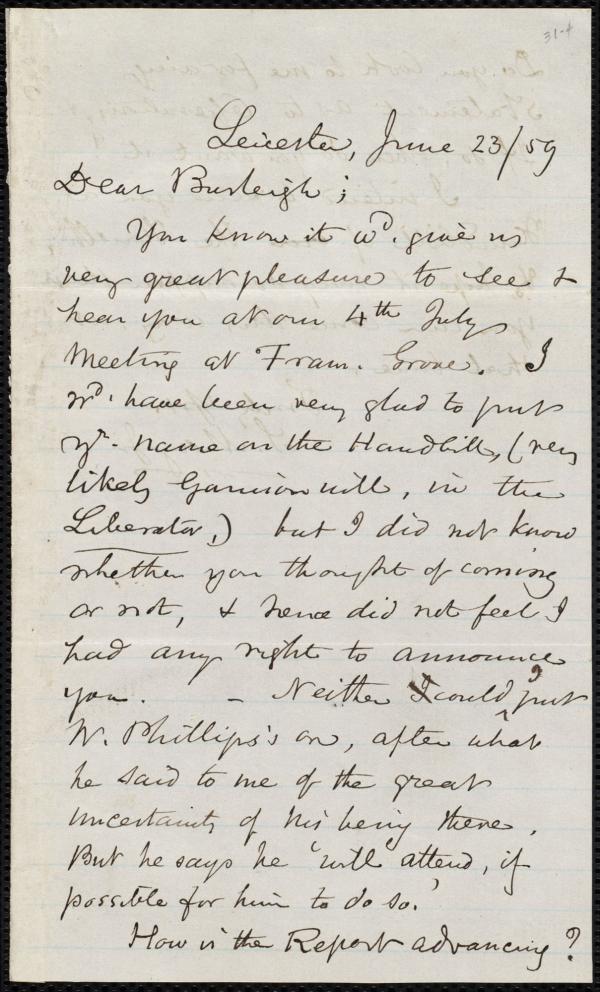 31-4
Leicester, June 23/59
Dear Burleigh;
You know it wd. give us
very great pleasure to see &
hear you at our 4th July
Meeting at Fram. Grove. I
wd. have been very glad to put
yr. name on the Handbill, (very
likely Garrison will, in the
Liberator,) but I did not know
whether you thought of coming
or not, & hence did not feel I
had any right to announce
you. - Neither could I put
W. Phillips's on, after what
he said to me of the great
uncertainty of his being there.
But he says he 'will attend, if
possible for him to do so.'
How is the Report advancing?